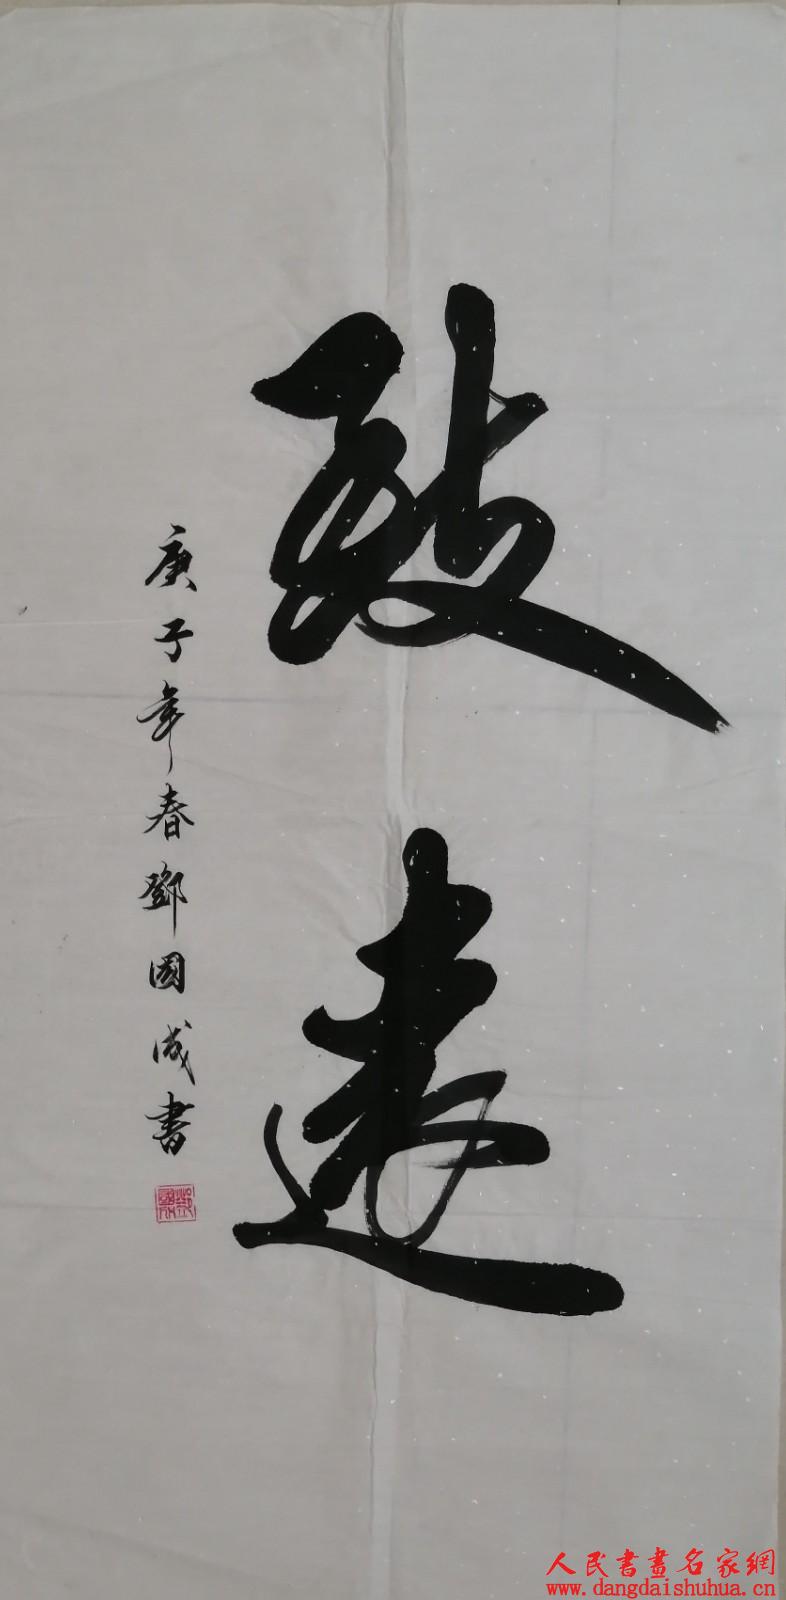 致远
庚子年春鄧國成書
人民書畫名家網
www.dangdaishuhua.cn